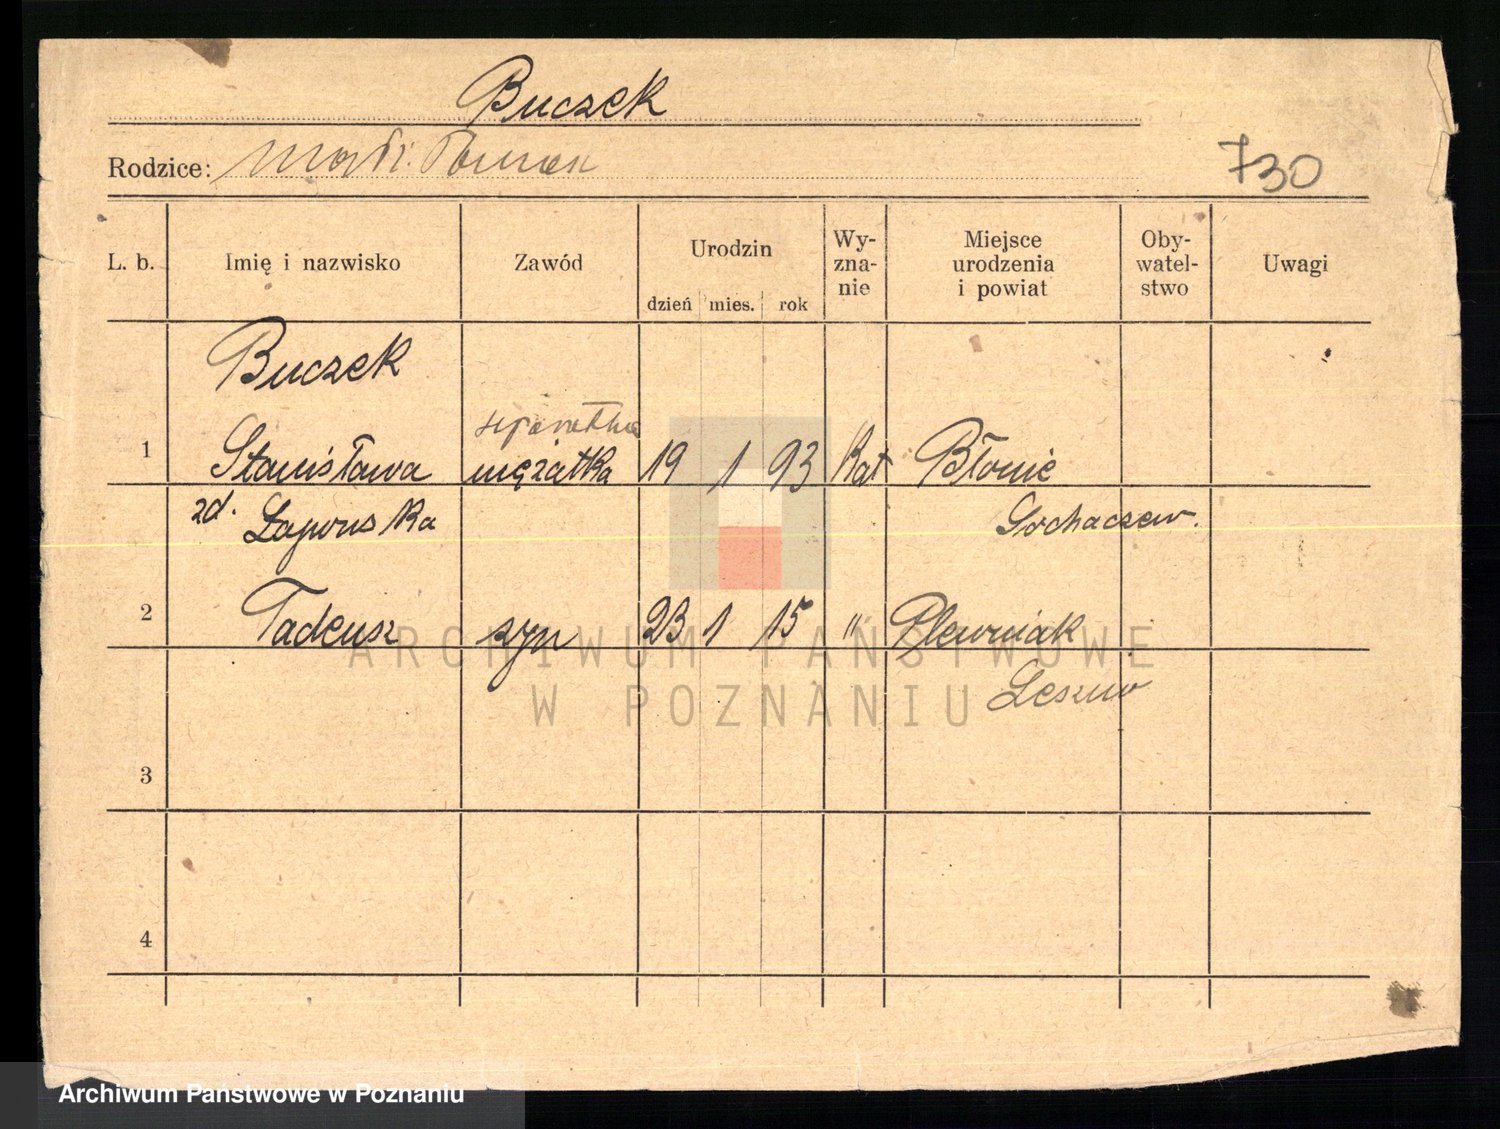 Buczek
Rodzice:
730
L. b. Imię i nazwisko Zawód Urodzin dzień mies. rok Wy- zna- nie Miejsce urodzenia i powiat Oby- watel- stwo Uwagi
Buczek
1 Stanisława mężatka 19 1 93 Kat Błonie
zd. Łapuska Sochaczew.
2 Tadeusz syn 23 1 15 " Plewniak
3
4
ARCHIWUM PAŃSTWOWE
W POZNANIU
Archiwum Państwowe w Poznaniu